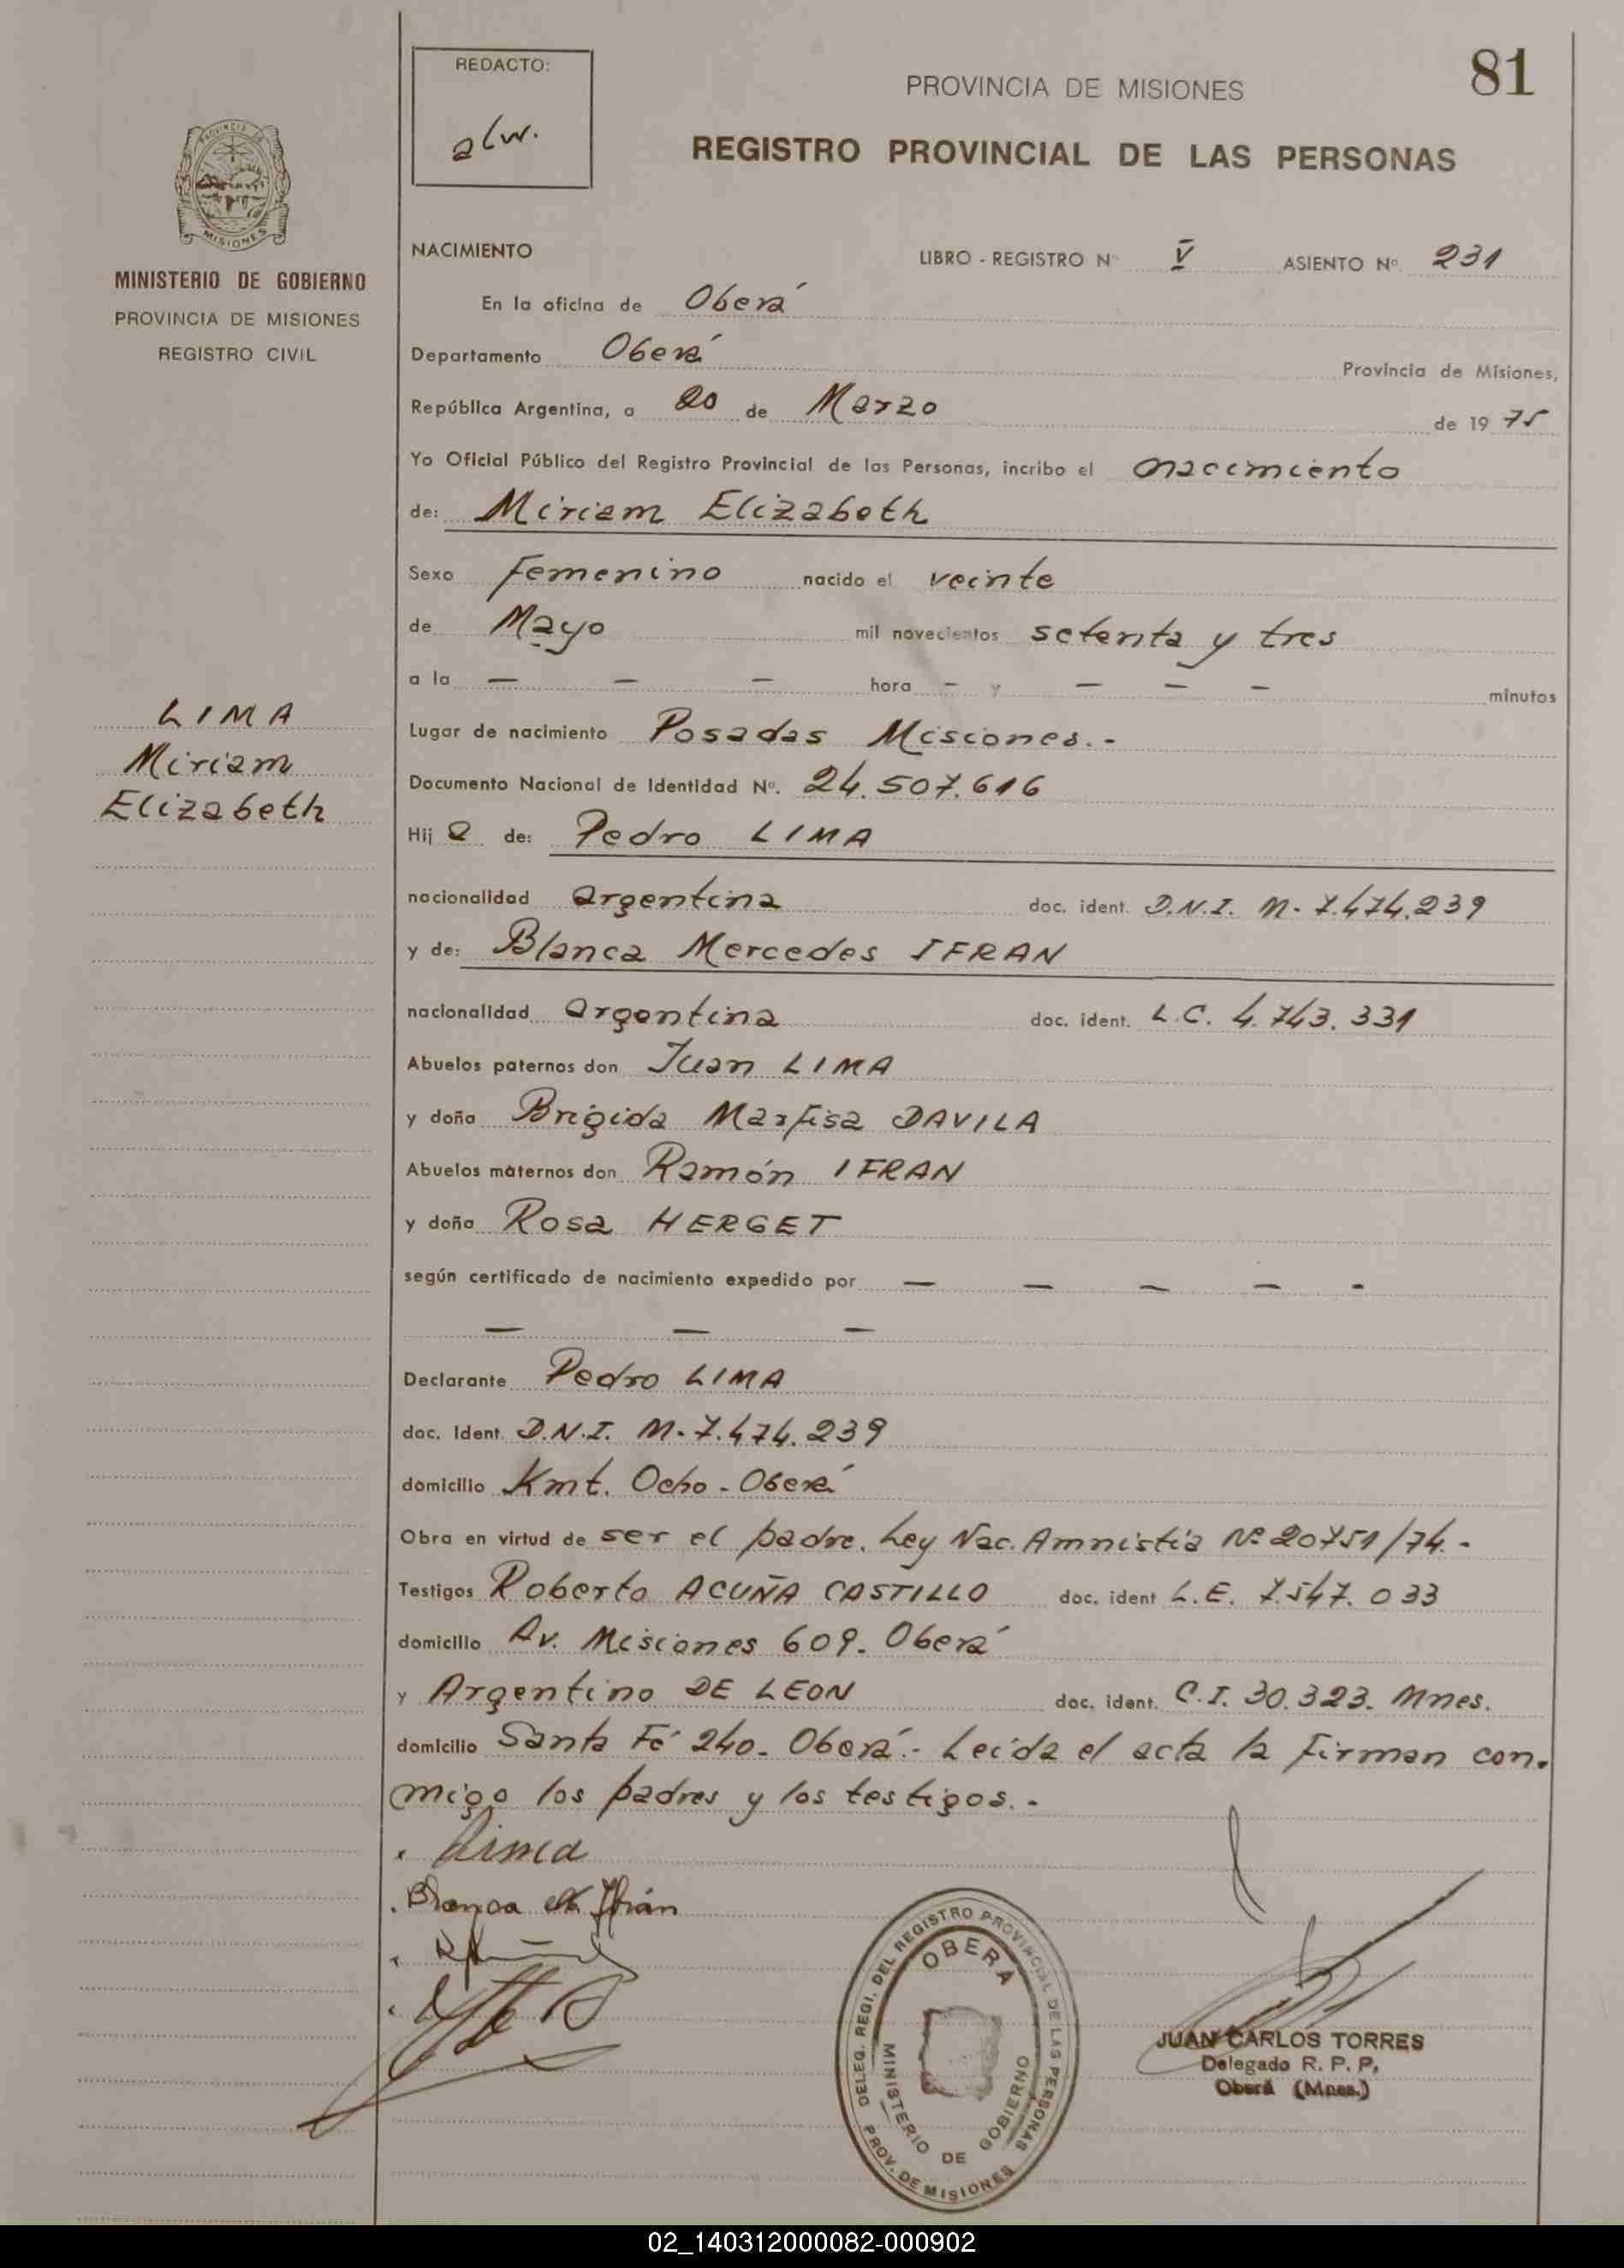 81
REDACTO:
alw.
PROVINCIA DE MISIONES
REGISTRO PROVINCIAL DE LAS PERSONAS
PROVINCIA DE
MISIONES
MINISTERIO DE GOBIERNO
PROVINCIA DE MISIONES
REGISTRO CIVIL
NACIMIENTO LIBRO - REGISTRO Nº V ASIENTO Nº. 231
En la oficina de Oberá
Departamento Oberá Provincia de Misiones,
República Argentina, a 20 de Marzo de 19 75
Yo Oficial Público del Registro Provincial de las Personas, incribo el nacimiento
de: Miriam Elizabeth
Sexo Femenino nacido el veinte
de Mayo mil novecientos setenta y tres
a la — — — hora - y — — — minutos
LIMA
Miriam
Elizabeth
Lugar de nacimiento Posadas Misiones.-
Documento Nacional de Identidad Nº. 24.507.616
Hij a de: Pedro LIMA
nacionalidad argentina doc. ident. D.N.I. M- 7.474.239
y de: Blanca Mercedes IFRAN
nacionalidad argentina doc. ident. L.C. 4.743.331
Abuelos paternos don Juan LIMA
y doña Brigida Marfisa DAVILA
Abuelos maternos don Ramón IFRAN
y doña Rosa HERGET
según certificado de nacimiento expedido por — — — — -
— — —
Declarante Pedro LIMA
doc. Ident D.N.I. M-7.474.239
domicilio Kmt. Ocho - Oberá
Obra en virtud de ser el padre. Ley Nac. Amnistía Nº 20751/74.-
Testigos Roberto ACUÑA CASTILLO doc. ident L.E. 7.547.033
domicilio Av. Misiones 609. Oberá
y Argentino DE LEON doc. ident. C.I. 30.323. Mnes.
domicilio Santa Fé 240. Oberá.- Leída el acta la firman con-
migo los padres y los testigos.-
Lima
Blanca M. Ifrán
DELEG. REGI. DEL REGISTRO PROVINCIAL DE LAS PERSONAS
OBERA
MINISTERIO DE GOBIERNO
PROV. DE MISIONES
JUAN CARLOS TORRES
Delegado R. P. P.
Oberá (Mnes.)
02_140312000082-000902